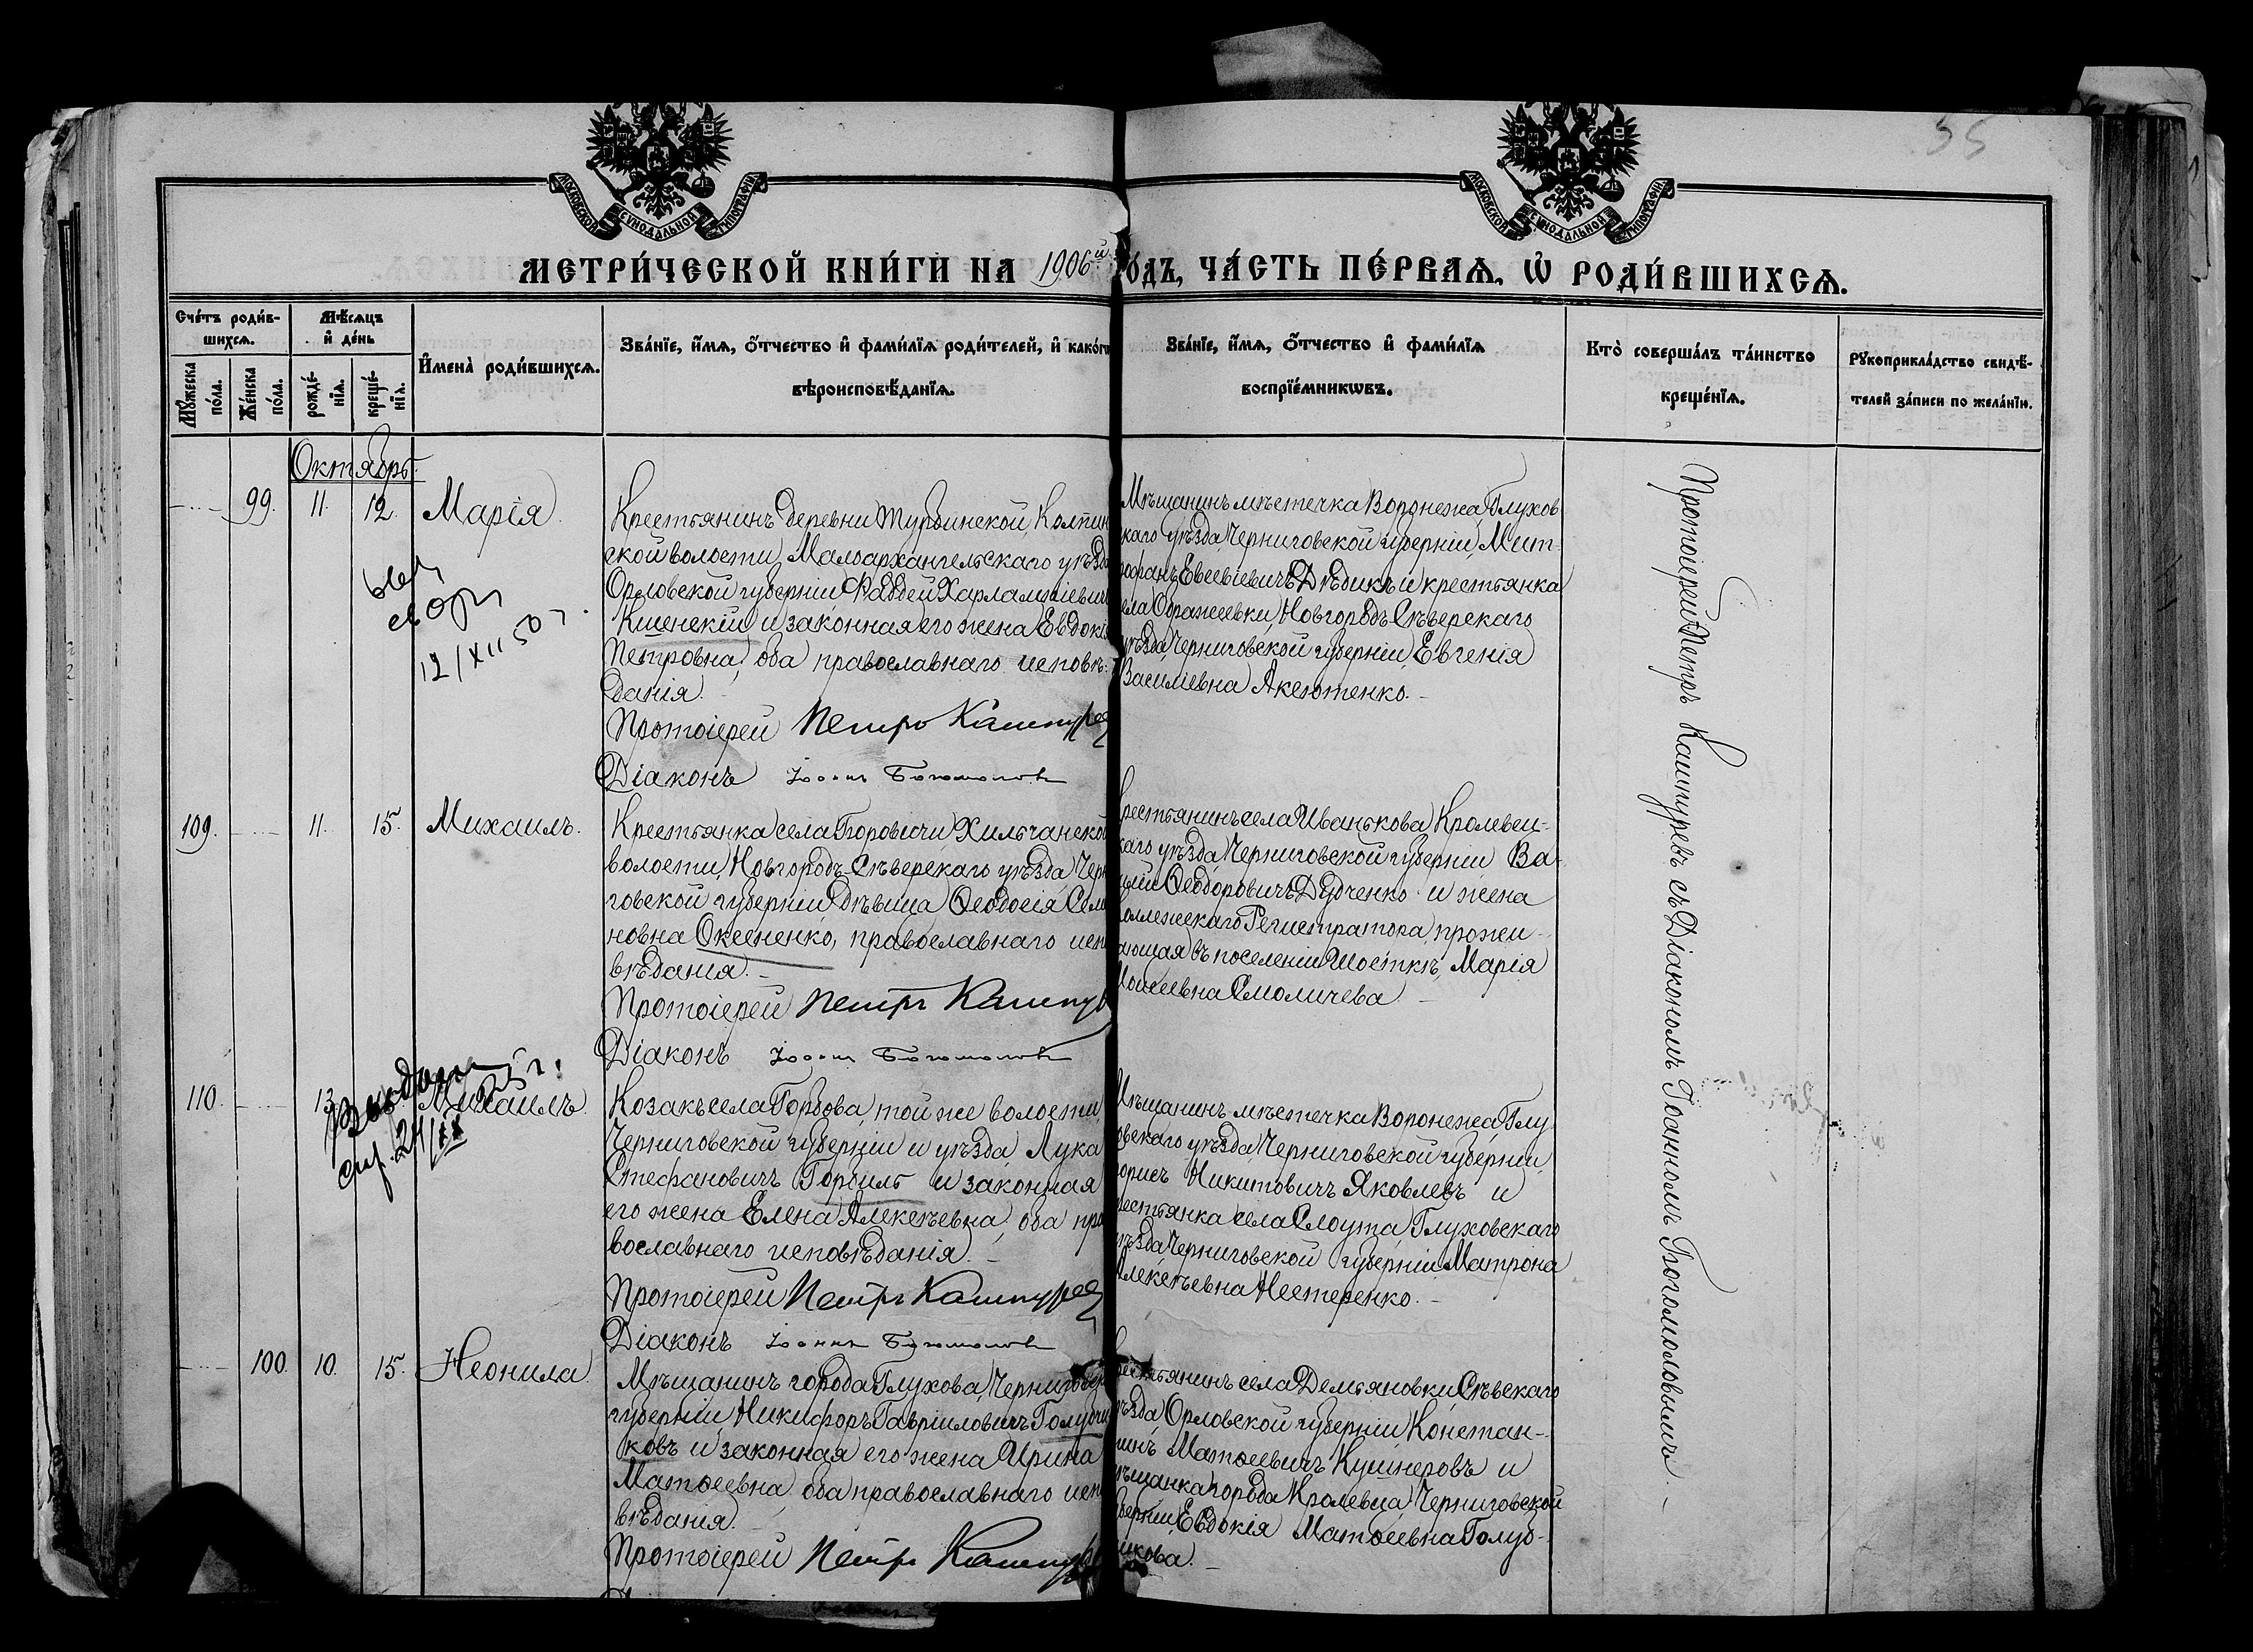 55
МОСКОВСКОЙ СѴНОДАЛЬНОЙ ТИПОГРАФІИ
МОСКОВСКОЙ СѴНОДАЛЬНОЙ ТИПОГРАФІИ
МЕТРИ́ЧЕСКОЙ КНИ́ГИ НА 1906й ГО́ДЪ, ЧА́СТЬ ПЕ́РВАѦ, Ѡ҆ РОДИ́ВШИХСѦ.
Сче́тъ роди́в-
шихсѧ.
Мꙋ́жеска по́ла.
Же́нска по́ла.
Мѣ́сѧцъ
и҆ де́нь
рожде́-
нїѧ.
креще́-
нїѧ.
И҆мена̀ роди́вшихсѧ.
Зва́нїе, и҆́мѧ, ѻ҆́тчество и҆ фами́лїѧ роди́телей, и҆ како́гѡ
вѣроисповѣ́данїѧ.
Зва́нїе, и҆́мѧ, ѻ҆́тчество и҆ фами́лїѧ
воспрїе́мникѡвъ.
Кто̀ соверша́лъ та́инство
креще́нїѧ.
Рꙋкоприкла́дство свидѣ́-
телей за́писи по жела́нїю.
Октябрь.
99. 11. 12. Марія.
12/XII 50 г.
Крестьянинъ деревни Турбинской, Колпин
ской волости, Малоархангельскаго уѣзда
Орловской губерніи Фаддей Харлампіевичъ
Кшенскій и законная его жена Евдокія
Петровна, оба православнаго исповѣ-
данія.
Протоіерей Петръ Кашпуревъ
Діаконъ Іоаннъ Богомоловъ
Мѣщанинъ мѣстечка Воронежа, Глухов
скаго уѣзда, Черниговской губерніи, Мит-
рофанъ Евсевіевичъ Дѣдикъ и крестьянка
села Ображеевки, Новгородъ Сѣверскаго
уѣзда, Черниговской губерніи, Евгенія
Василіевна Аксютенко.
109. 11. 15. Михаилъ.
Крестьянка села Поровичи, Хильчанской
волости, Новгородъ-Сѣверскаго уѣзда Чер
говской губерніи дѣвица Ѳеодосія Семе
новна Оксененко, православнаго испо
вѣданія.
Протоіерей Петръ Кашпурев
Діаконъ Іоаннъ Богомоловъ
крестьянинъ села Иванькова, Кролевец-
каго уѣзда, Черниговской губерніи Ва-
силій Ѳеодоровичъ Дудченко и жена
Коллежскаго Регистратора, прожи-
вающая въ поселеніи Шосткѣ, Марія
Моисеевна Смоличева.
110. 13. Михаилъ.
Козакъ села Горбова, той же волости,
Черниговской губерніи и уѣзда, Лука
Стефановичъ Горбиль и законная
его жена Елена Алексѣевна, оба пра
вославнаго исповѣданія.
Протоіерей Петръ Кашпуревъ
Діаконъ Іоаннъ Богомоловъ
Мѣщанинъ мѣстечка Воронежа, Глу
ховскаго уѣзда, Черниговской губерніи,
Борисъ Никитовичъ Яковлевъ и
крестьянка села Слоута, Глуховскаго
уѣзда Черниговской губерніи Матрона
Алексѣевна Нестеренко.
100. 10. 15. Неонила
Мѣщанинъ города Глухова, Черниговской
губерніи, Никифоръ Гавріиловичъ Голубчи
ковъ и законная его жена Ирина
Матѳеевна, оба православнаго испо
вѣданія.
Протоіерей Петръ Кашпурев
крестьянинъ села Демьяновки, Сѣвскаго
уѣзда, Орловской губерніи, Констан-
тинъ Матѳеевичъ Кушнеровъ и
мѣщанка города Кролевца, Черниговской
губерніи, Евдокія Матѳеевна Голуб-
чикова.
Протоіерей Петръ Кашпуревъ съ Діакономъ Іоанномъ Богомоловымъ.